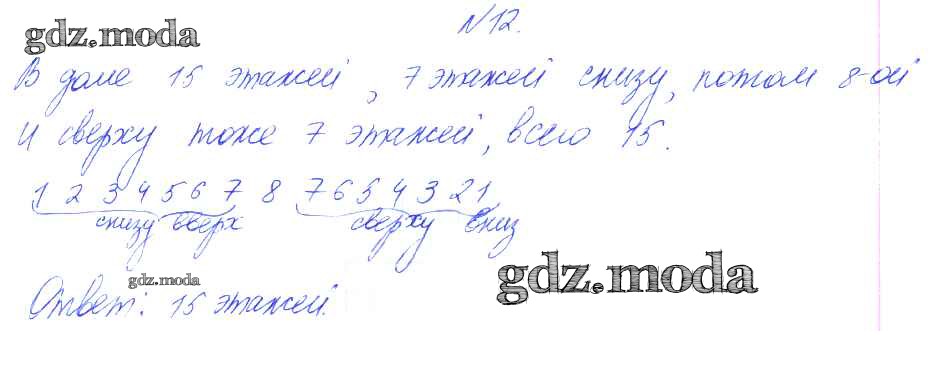 №12.
gdz.moda
В доме 15 этажей, 7 этажей снизу, потом 8-ой
и сверху тоже 7 этажей, всего 15.
1 2 3 4 5 6 7 8 7 6 5 4 3 2 1
снизу вверх сверху вниз
gdz.moda
gdz.moda
Ответ: 15 этажей.